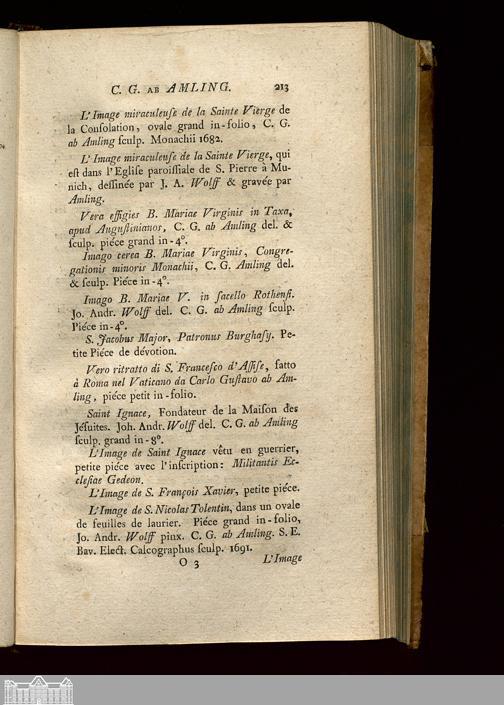 C. G. AB AMLING. 213
L'Image miraculeuſe de la Sainte Vierge de
la Conſolation, ovale grand in-folio, C. G.
ab Amling ſculp. Monachii 1682.
L'Image miraculeuſe de la Sainte Vierge, qui
eſt dans l'Egliſe paroiſſiale de S. Pierre à Mu-
nich, deſſinée par J. A. Wolff & gravée par
Amling.
Vera effigies B. Mariae Virginis in Taxa,
apud Auguſtinianos, C. G. ab Amling del. &
ſculp. piéce grand in-4°.
Imago cerea B. Mariae Virginis, Congre-
gationis minoris Monachii, C. G. Amling del.
& ſculp. Piéce in-4°.
Imago B. Mariae V. in ſacello Rothenſi.
Jo. Andr. Wolff del. C. G. ab Amling ſculp.
Piéce in-4°.
S. Jacobus Major, Patronus Burghaſy. Pe-
tite Piéce de dévotion.
Vero ritratto di S. Franceſco d'Aſſiſe, fatto
à Roma nel Vaticano da Carlo Guſtavo ab Am-
ling, piéce petit in-folio.
Saint Ignace, Fondateur de la Maiſon des
Jéſuites. Joh. Andr. Wolff del. C. G. ab Amling
ſculp. grand in-8°.
L'Image de Saint Ignace vêtu en guerrier,
petite piéce avec l'inſcription: Militantis Ec-
cleſiae Gedeon.
L'Image de S. François Xavier, petite piéce.
L'Image de S. Nicolas Tolentin, dans un ovale
de feuilles de laurier. Piéce grand in-folio,
Jo. Andr. Wolff pinx. C. G. ab Amling. S. E.
Bav. Elect. Calcographus ſculp. 1691.
O 3 L'Image